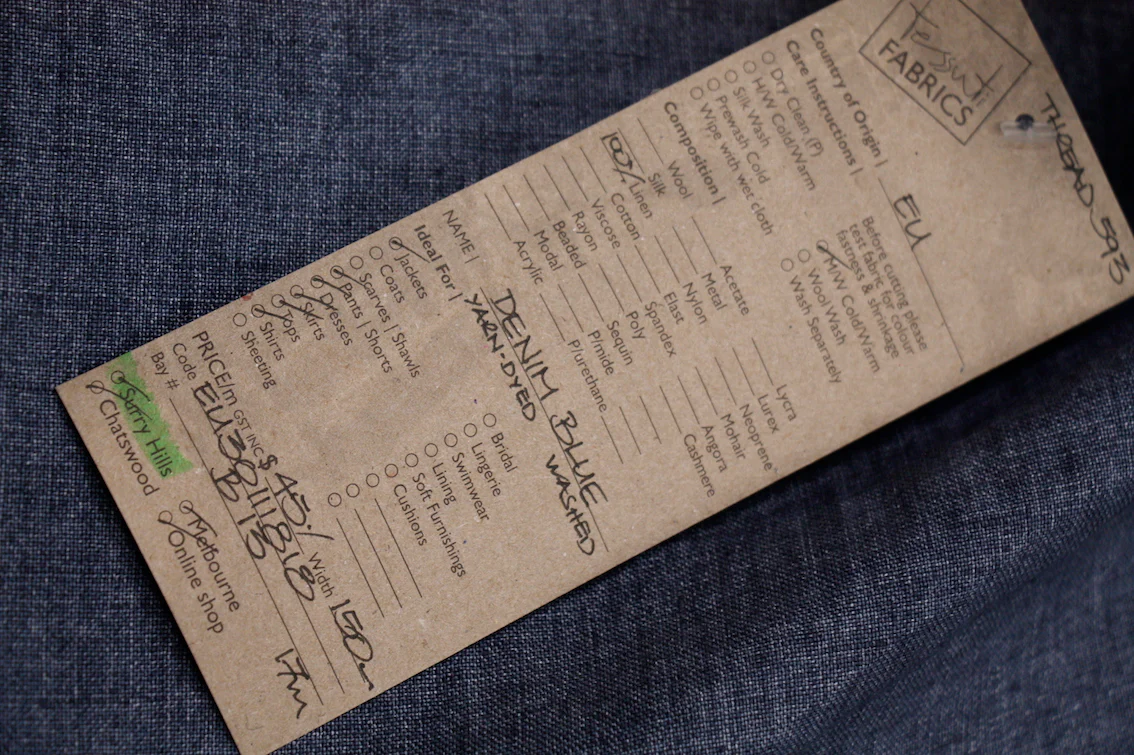 THREAD-593
tessuti
FABRICS
Country of Origin | EU
Care Instructions |
Dry Clean (P)
H/W Cold/Warm
Silk Wash
Prewash Cold
Wipe with wet cloth
Before cutting please
test fabric for colour
fastness & shrinkage
M/W Cold/Warm
Wool Wash
Wash Separately
Composition |
Wool
Silk
100% Linen
Cotton
Viscose
Rayon
Beaded
Modal
Acrylic
Acetate
Metal
Nylon
Elast
Spandex
Poly
Sequin
P/mide
P/urethane
Lycra
Lurex
Neoprene
Mohair
Angora
Cashmere
NAME | DENIM BLUE
YARN-DYED WASHED
Ideal For |
Jackets
Coats
Scarves | Shawls
Pants | Shorts
Dresses
Skirts
Tops
Shirts
Sheeting
Bridal
Lingerie
Swimwear
Lining
Soft Furnishings
Cushions
PRICE/m GST INC $45./ Width 150cm
Code
Bay # B 13 17m
Surry Hills
Chatswood
Melbourne
Online shop